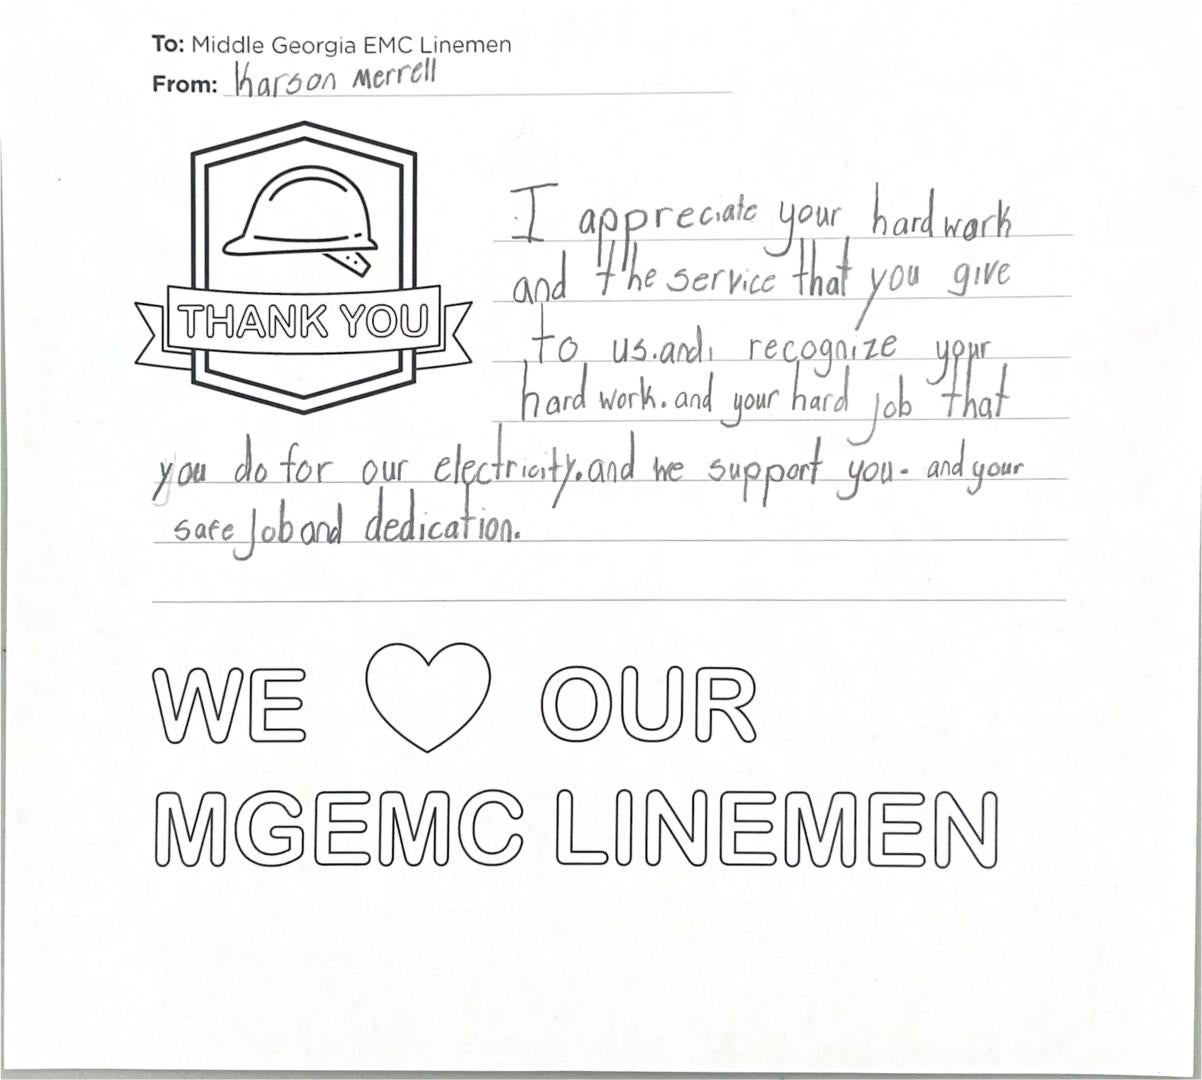 To: Middle Georgia EMC Linemen
From: Karson Merrell
THANK YOU
I appreciate your hard work
and the service that you give
to us.and i recognize your
hard work.and your hard job that
you do for our electricity.and we support you- and your
safe Job and dedication.
WE OUR
MGEMC LINEMEN